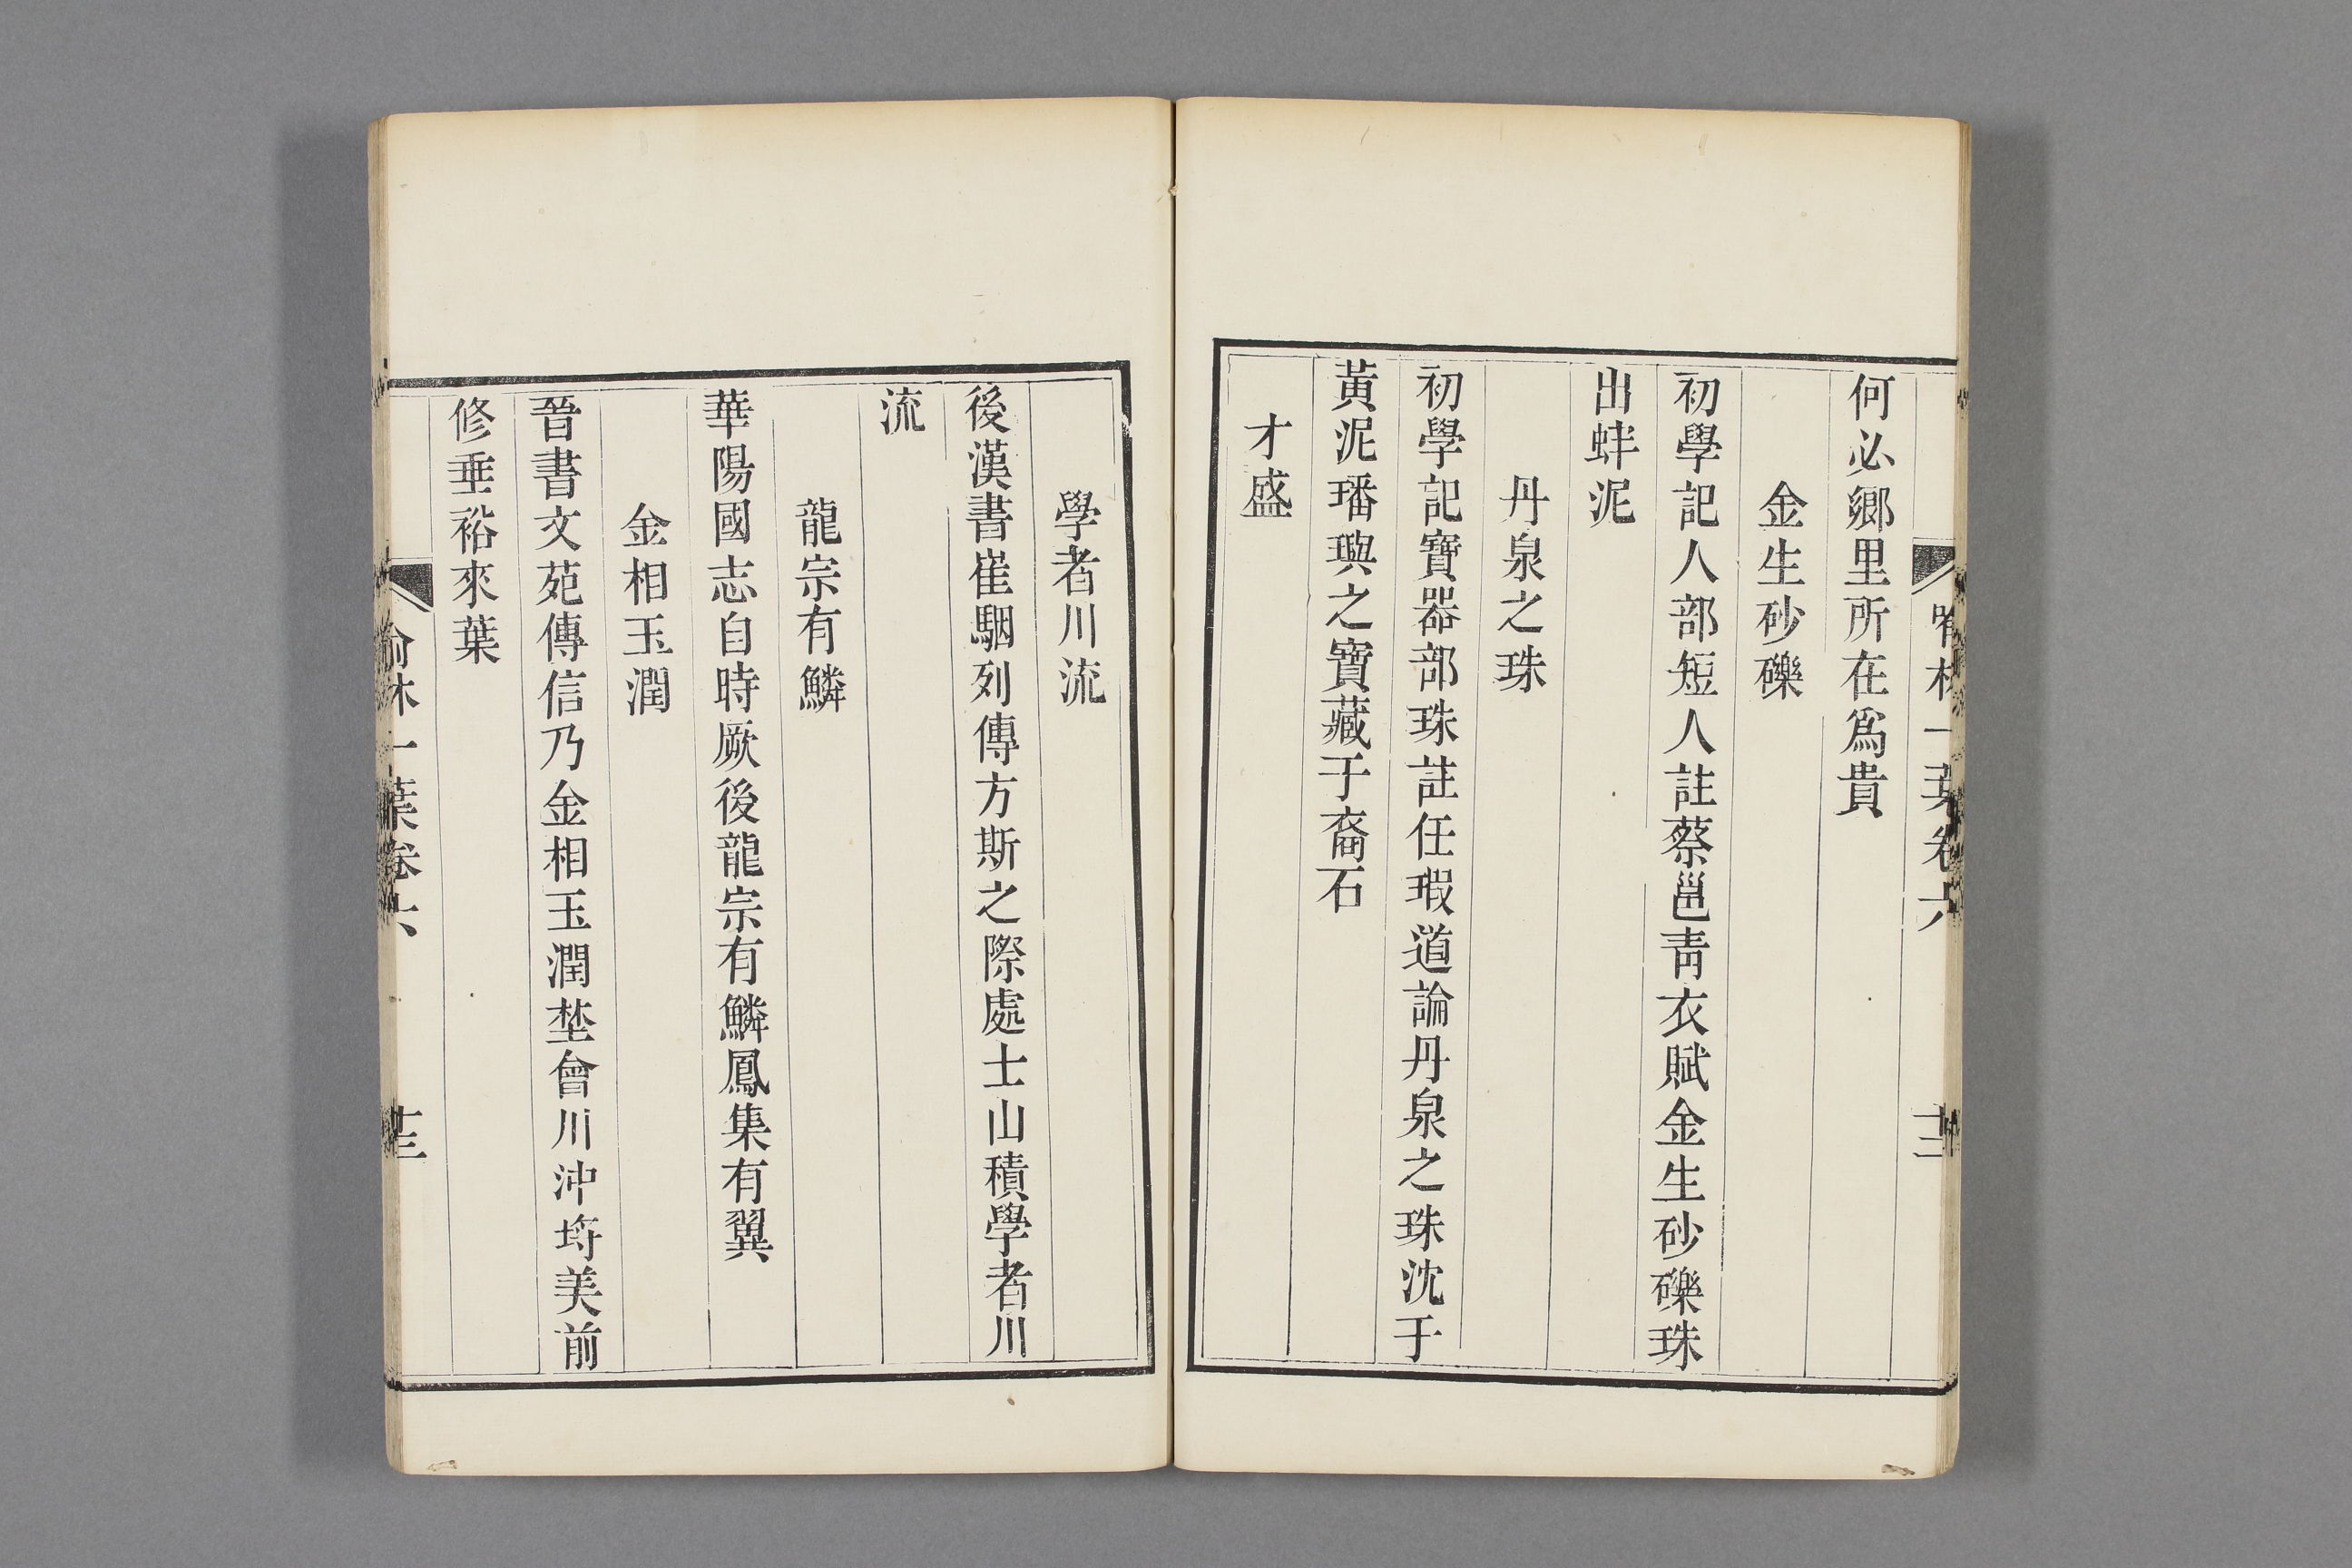 何必鄉里所在爲貴
金生砂礫
初學記人部短人註蔡邕靑衣賦金生砂礫珠
出蚌泥
丹泉之珠
初學記寶器部珠註任瑕道論丹泉之珠沈于
黃泥璠璵之寶藏于裔石
才盛
學者川流
後漢書崔駰列傳方斯之際處士山積學者川
流
龍宗有鱗
華陽國志自時厥後龍宗有鱗鳳集有翼
金相玉潤
晉書文苑傳信乃金相玉潤埜會川沖埓美前
修垂裕來葉
喻林一葉卷六